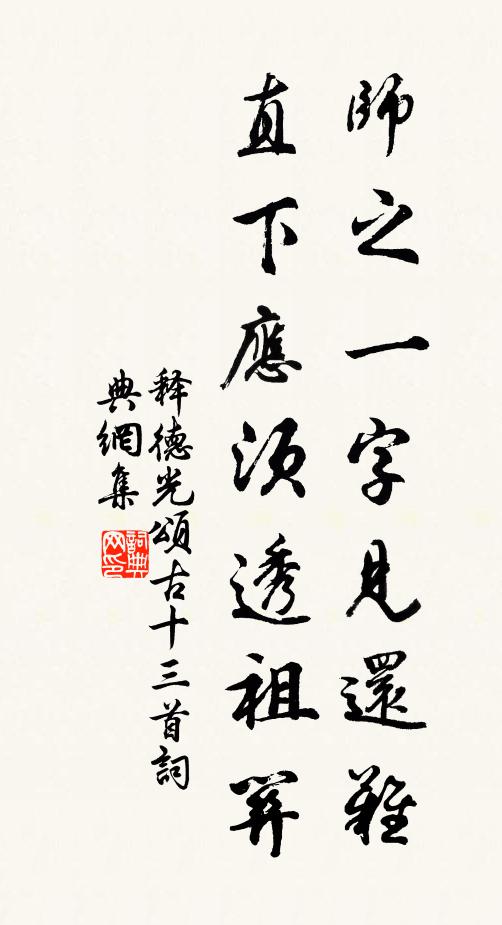 師之一字見還難
直下應須透祖關
释德光頌古十三首詞
典網集
詞典
网印